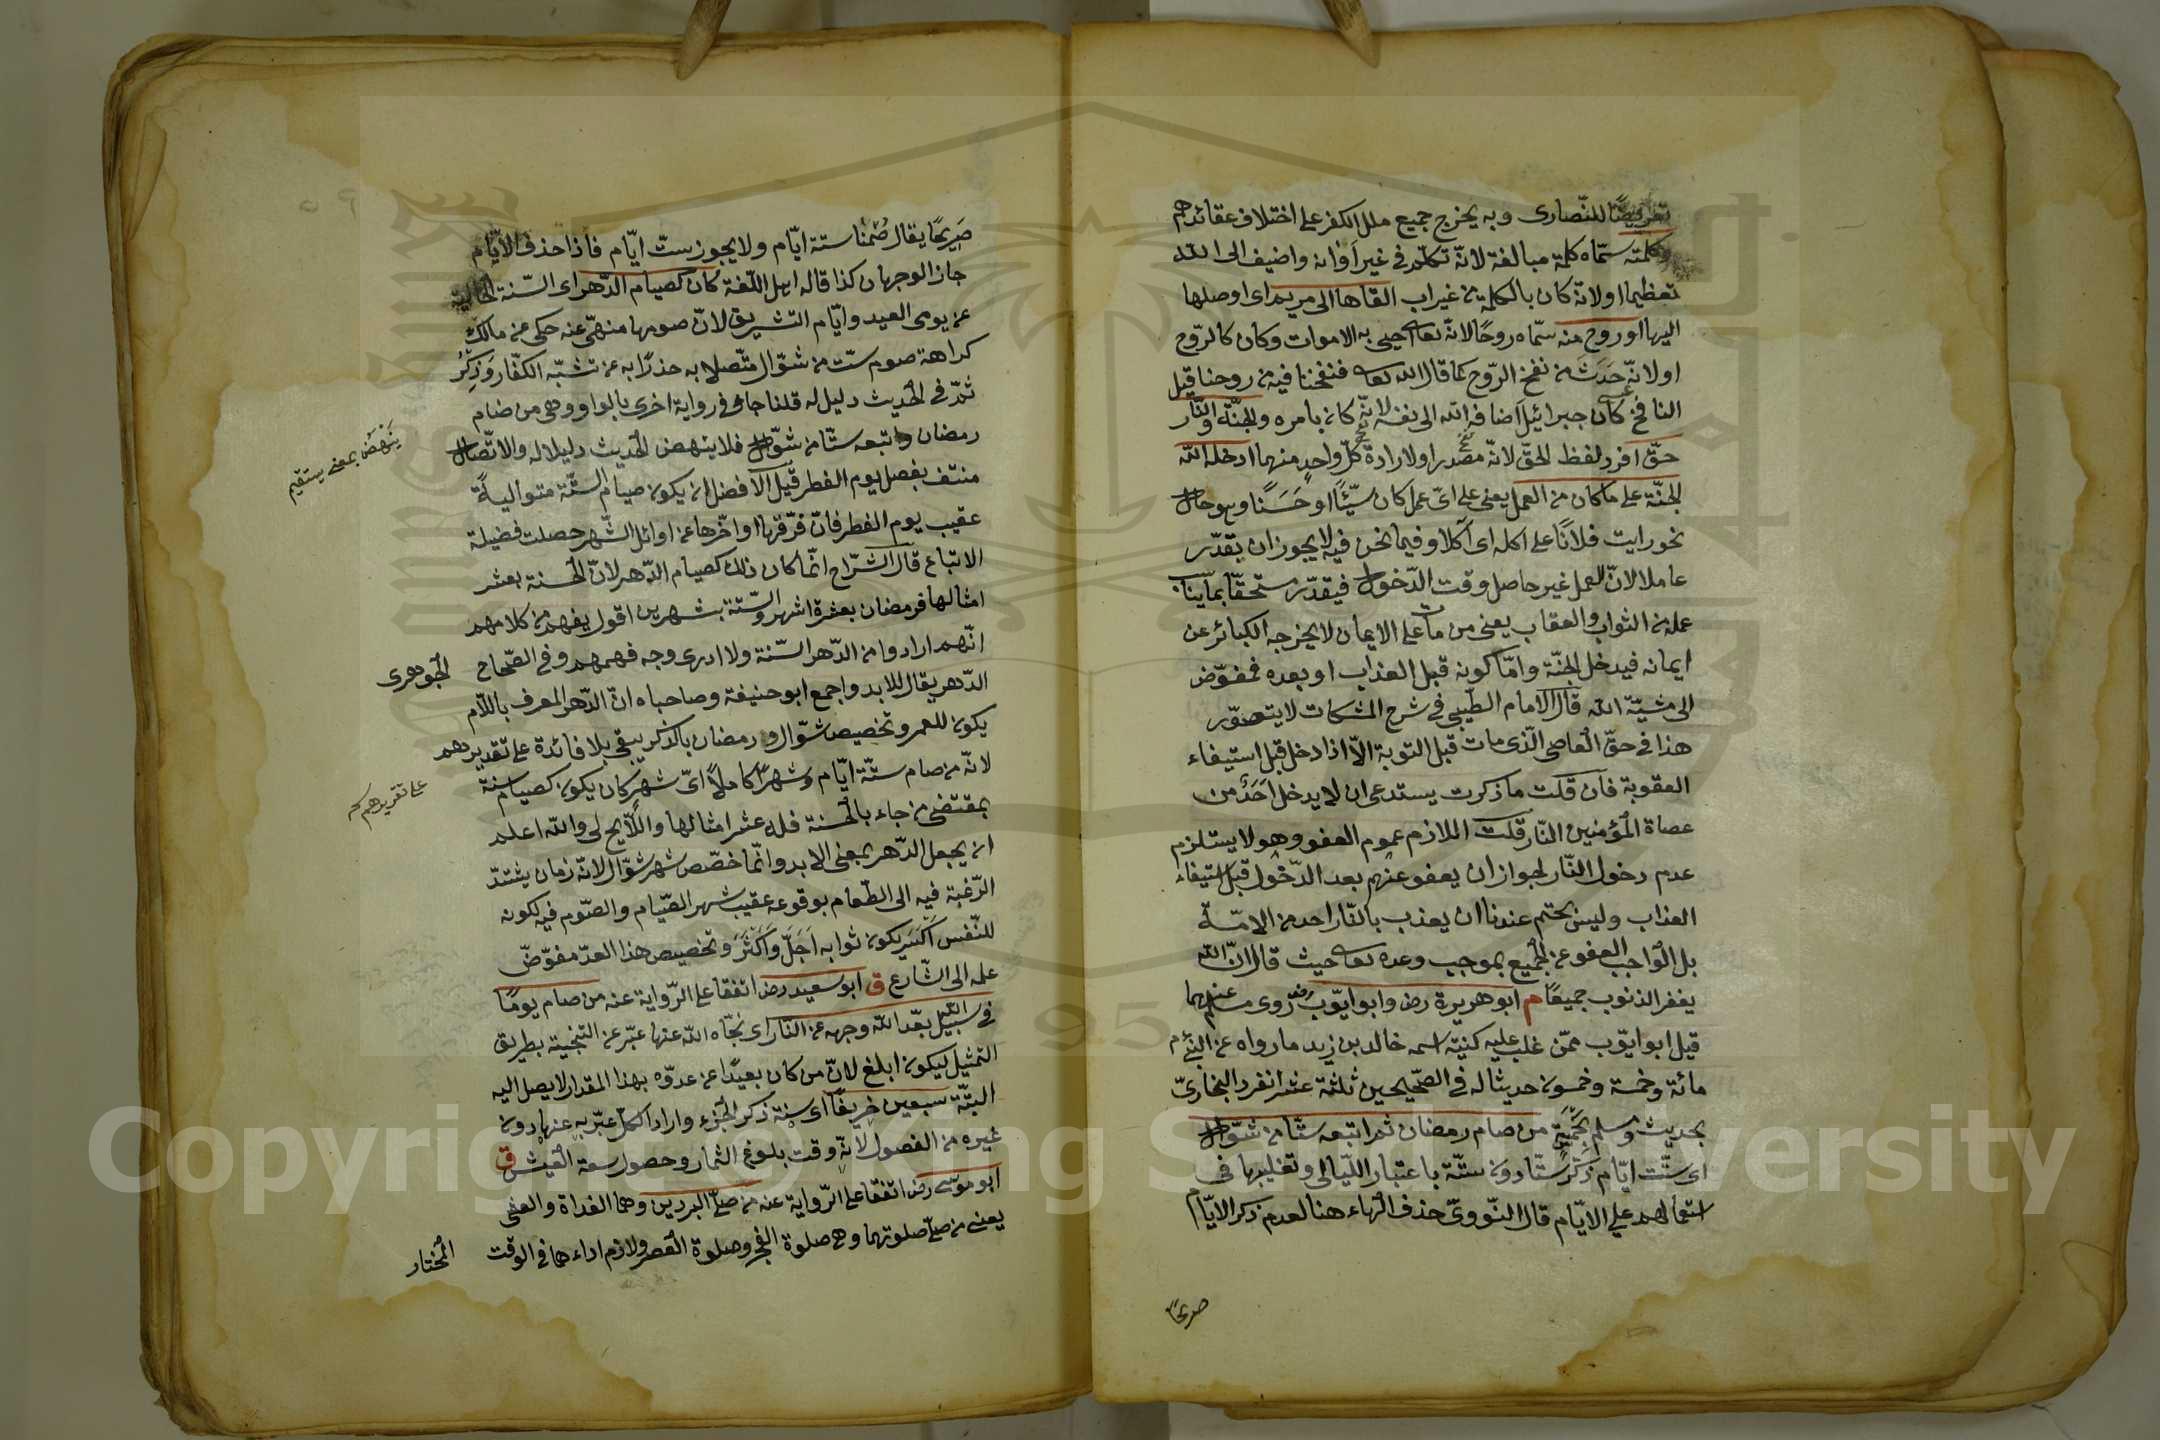 تعريضًا للنّصارى وبه يخرج جميع ملل الكفر على اختلاف عقائدهم
وكلمته سمّاه كلمة مبالغة لانّه تكلّم في غير أوانه واضيف الى الله
تعظيما او لانّه كان بالكلمة من غير اب القاها الى مريم اى اوصلها
اليها وروح منه سمّاه روحًا لانّه تعا احيى به الاموات وكان كالرّوح
او لانّه حَدَثَ من نفخ الرّوح كما قال الله تعا فنفخنا فيه من روحنا قيل
النافخ كان جبرائيل اضافه الله الى نفسه لانّه كان بامره والجنّة والنّار
حقّ افرد لفظ الحقّ لانّه مصدر او لارادة كلّ واحد منهما ادخله الله
الجنّة على ما كان من العمل يعنى على اىّ عمل كان سيّئًا او حَسَنًا وهو حال
نحو رايت فلانًا على اكله اى آكلا وفيما نحن فيه لا يجوز ان يقدّر
عاملا لانّ العمل غير حاصل وقت الدّخول فيقدّر مستحقّا بما يناسب
عمله من الثواب والعقاب يعنى من مات على الايمان لا يخرجه الكبائر عن
ايمانه فيدخل الجنّة وامّا كونه قبل العذاب او بعده فمفوّض
الى مشيّة الله قال الامام الطّيبى في شرح المشكات لا يتصوّر
هذا في حقّ العاصى الّذى مات قبل التوبة الّا اذا دخل قبل استيفاء
العقوبة فان قلت ما ذكرت يستدعى ان لا يدخل احَدٌ من
عصاة المؤمنين النّار قلت اللازم عموم العفو وهو لا يستلزم
عدم دخول النّار لجواز ان يعفو عنهم بعد الدّخول قبل استيفاء
العذاب وليس بحتم عندنا ان يعذب بالنّار احد من الامّة
بل الواجب العفو عن الجميع بموجب وعده تعا حيث قال انّ الله
يغفر الذنوب جميعًا م ابو هريرة رض وابو ايّوب رض روى مسلم عنهما
قيل ابو ايّوب ممّن غلب عليه كنيته اسمه خالد بن زيد ما رواه عن النبىّ م
مائة وخمسة وخمسون حديثا له في الصّحيحين ثلثة عشر انفرد البخارىّ
بحديث ومسلم بخمسة من صام رمضان ثم اتبعه ستّا من شوّال
اى ستّت ايّام ذكر ستّا دون ستّة باعتبار اللّيالى وتغليبها في
استعمالهم على الايّام قال النّووىّ حذف الهاء هنا لعدم ذكر الايّام
صريحًا
صَريحًا يقال صُمْنا ستة ايّام ولا يجوز ستّ ايّام فاذا حذف الايّام
جاز الوجهان كذا قاله اهل اللّغة كان كصيام الدّهر اى السّنة الخالية
عن يومى العيد وايّام التشريق لانّ صومها منهىّ عنه حكى عن مالك
كراهة صوم ستّ من شوّال متّصلا به حذرًا به عن تشبّه الكفّار وَذِكْرُ
ثمّ في الحديث دليل له قلنا جاء في رواية اخرى بالواو وهى من صام
رمضان واتبعه ستّا من شوّال فلا ينهض الحديث دليلا له والاتّصال
منتف بفصل يوم الفطر قيل الافضل ان يكون صيام السّتّة متواليةً
عقيب يوم الفطر فان فرّقها او اخّرها عن اوائل الشّهر حصلت فضيلة
الاتباع قال الشرّاح انّما كان ذلك كصيام الدّهر لانّ الحسنة بعشر
امثالها فرمضان بعشرة اشهر والسّتّة بشهرين اقول يفهم من كلامهم
انّهم ارادوا من الدّهر السّنة ولا ادرى وجه فهمهم وفي الصّحاح
الدّهر يقال للابد واجمع ابو حنيفة وصاحباه انّ الدّهر المعرف باللّام
يكون للعمر وتخصيص شوّال ورمضان بالذكر يبقى بلا فائدة على تقديرهم
لانّه من صام ستّة ايّام وشهرًا كاملًا اىّ شهر كان يكون كصيام سنة
بمقتضى من جاء بالحسنة فله عشر امثالها واللّايح لى والله اعلم
ان يجعل الدّهر بمعنى الابد وانّما خصّص شهر شوّال لانّه زمان يشتدّ
الرّغبة فيه الى الطّعام بوقوعه عقيب شهر الصّيام والصّوم فيه لكونه
للنّفس اكسر يكون ثوابه اَجَلَّ وَاَكْثَرَ وتخصيص هذا العدد مفوّضّ
علمه الى الشّارع ق ابو سعيد رض اتفقا على الرّواية عنه من صام يومًا
في سبيل الله بعّد الله وجهه عن النّار اى نجّاه الله عنها عبّر عن التنجية بطريق
التمثيل ليكون ابلغ لانّ من كان بعيدًا عن عدوّه بهذا المقدار لا يصل اليه
البتّة سبعين خريفًا اى سنة ذكر الجزء واراد الكلّ عبّر به عنها دون
غيره من الفصول لانّه وقت بلوغ الثمار وحصول سعة العيش ق
ابو موسى رض اتفقا على الرّواية عنه من صلّى البردين وهما الغداة والعشى
يعنى من صلّى صلوتهما وهى صلوة الفجر وصلوة العصر ولازم اداءهما في الوقت
المختار
يَنهَضُ بمعنى يستقيم
الجوهرى
على تقديرهم